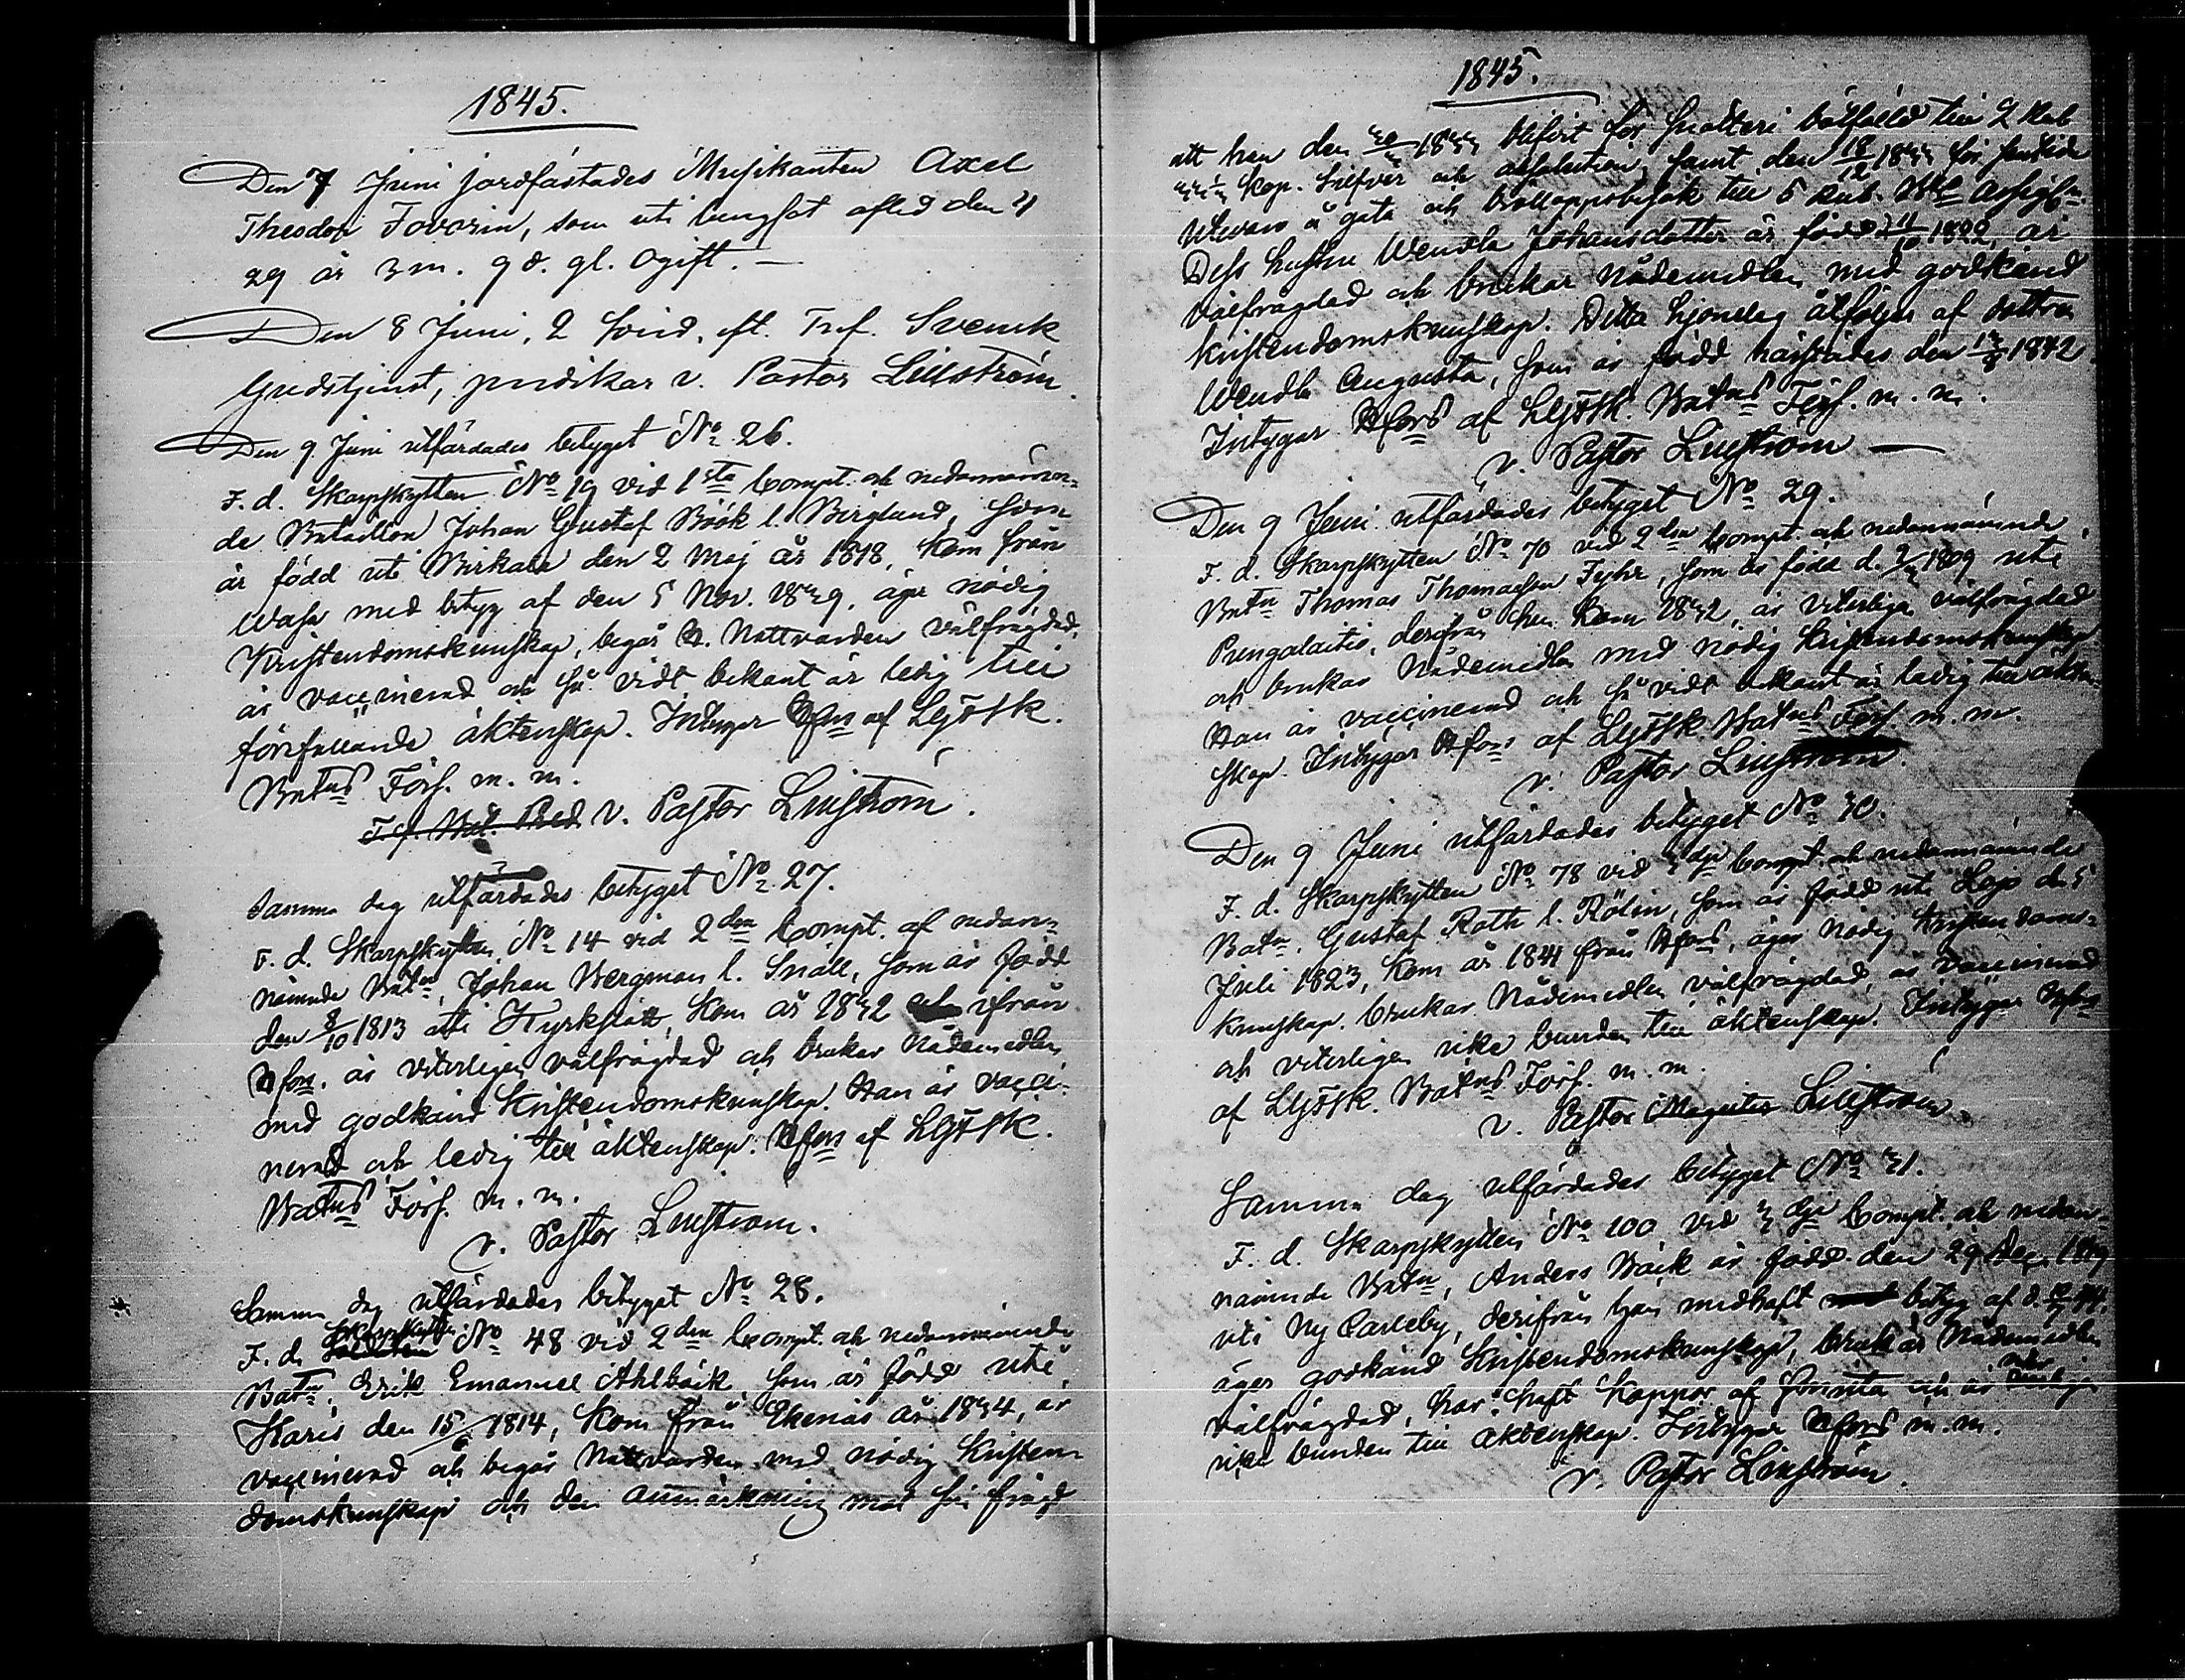 1845.
Den 7 Juni jordfästades Musikanten Axel
Theodor Favorin, som uti lungsot afled den 4
29 år 3 m. 9 d. gl. Ogift. —
Den 8 Juni, 2 Sönd. eft. Tref. Svensk
Gudstjenst, predikar v. Pastor Lillström.
Den 9 Juni utfärdades betyget No 26.
F. d. Skarpskytten No 19 vid 1sta Compt. och nedannämn-
de Bataillon Johan Gustaf Böök l. Berglund, som
är född uti Birkala den 2 Maj år 1818, kom från
Wasa med betyg af den 5 Nov. 1839, äger nödig
Kristendomskunskap, begår H. Nattvarden välfrägdad,
är vaccinerad och så vidt bekant är ledig till
förefallande äktenskap. Intygar Hfors af LGFSk.
Batns Förs. m. m.
T. f. Bat. Pred. v. Pastor Lillström.
Samma dag utfärdades betyget No 27.
F. d. Skarpskytten No 14 vid 2dra Compt. af nedan-
nämnde Batn, Johan Bergman l. Snäll, som är född
den 8/10 1813 uti Kyrkslätt, kom år 1832 ifrån
Hfors. är veterligen välfrägdad och brukar Nådemedlen
med godkänd Kristendomskunskap. Han är vacci-
nerad och ledig till äktenskap. Hfors af LGFSk.
Batns Förs. m. m.
v. Pastor Lillström.
Samma dag utfärdades betyget No 28.
F. d. Skarpskytten No 48 vid 2dra Compt. och nedannämnde
Batn. Erik Emanuel Ahlbäck, som är född uti
Karis den 15/6 1814, kom från Ekenäs år 1834, är
vaccinerad och begår Nattvarden med nödig Kristen-
domskunskap och den anmärkning mot sin frägd
1845.
att han den 1833 blifvit för snatteri bötfälld till 2 Rub
33 1/3 kop. Silfver och absolution, samt den 18/12 1833 för
å gata och till 5 Rub. Bko
Dess hustru Wendla Johansdotter är född 11/10 1822, är
välfrägdad och brukar Nådemedlen med godkänd
kristendomskunskap. Detta hjonelag åtföljes af dottren
Wendla Augusta, som är född härstädes den 1842
Intygar Hfors af LGFSk. Batns Förs. m. m.
v. Pastor Lillström —
Den 9 Juni utfärdades betyget No 29.
F. d. Skarpskytten No 70 vid 2dra Compt. och nedannämnde
Batn Thomas Thomasson Fyhr, som är född d. 1809 uti
Pungalaitio, derifrån han kom 1832, är veterligen välfrägdad
och brukar Nådemedlen med nödig kristendomskunskap
Han är vaccinerad och så vidt bekant är ledig till äkten-
skap. Intygar Hfors af LGFSk Batns Förs. m. m.
v. Pastor Lillström.
Den 9 Juni utfärdades betyget No 30.
F. d. Skarpskytten No 78 vid 3dje Compt. och nedannämnde
Batn. Gustaf Roth l. Rölin, som är född uti Lojo d. 5
Juli 1823, kom år 1841 från Hfors, äger nödig Kristendoms-
kunskap, brukar Nådemedlen välfrägdad, är vaccinerad
och veterligen icke bunden till äktenskap. Intygar Hfors
af LGFSk. Batns Förs. m. m.
v. Pastor Magister Lillström.
Samma dag utfärdades betyget No 31.
F. d. Skarpskytten No 100 vid 3dje Compt. och nedan-
nämnde Batn, Anders Bäck är född den 29 Dec. 1819
uti Ny Carleby, derifrån han medhaft betyg af d.
äger godkänd Kristendomskunskap, brukar Nådemedlen
välfrägdad, har haft koppor och är veterligen
icke bunden till äktenskap. Intygar Hfors m. m.
v. Pastor Lillström.